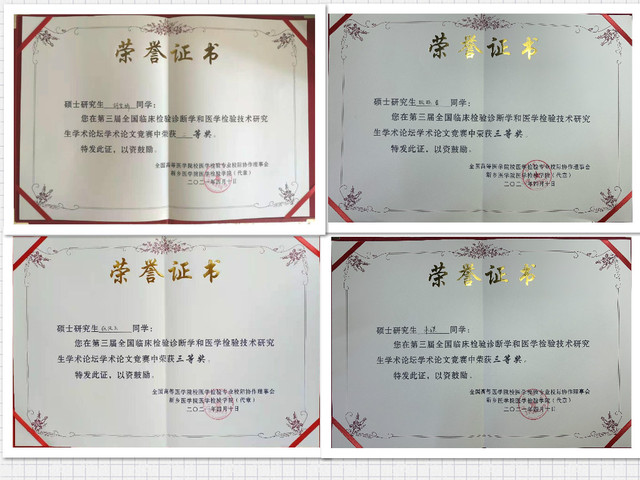 荣誉证书
硕士研究生 同学：
您在第三届全国临床检验诊断学和医学检验技术研究
生学术论坛学术论文竞赛中荣获 等奖。
特发此证，以资鼓励。
全国高等医学院校医学检验专业校际协作理事会
新乡医学院医学检验学院（代章）
二〇二一年四月十日
荣誉证书
硕士研究生 同学：
您在第三届全国临床检验诊断学和医学检验技术研究
生学术论坛学术论文竞赛中荣获三等奖。
特发此证，以资鼓励。
全国高等医学院校医学检验专业校际协作理事会
新乡医学院医学检验学院（代章）
二〇二一年四月十日
荣誉证书
硕士研究生 同学：
您在第三届全国临床检验诊断学和医学检验技术研究
生学术论坛学术论文竞赛中荣获三等奖。
特发此证，以资鼓励。
全国高等医学院校医学检验专业校际协作理事会
新乡医学院医学检验学院（代章）
二〇二一年四月十日
荣誉证书
硕士研究生 同学：
您在第三届全国临床检验诊断学和医学检验技术研究
生学术论坛学术论文竞赛中荣获三等奖。
特发此证，以资鼓励。
全国高等医学院校医学检验专业校际协作理事会
新乡医学院医学检验学院（代章）
二〇二一年四月十日